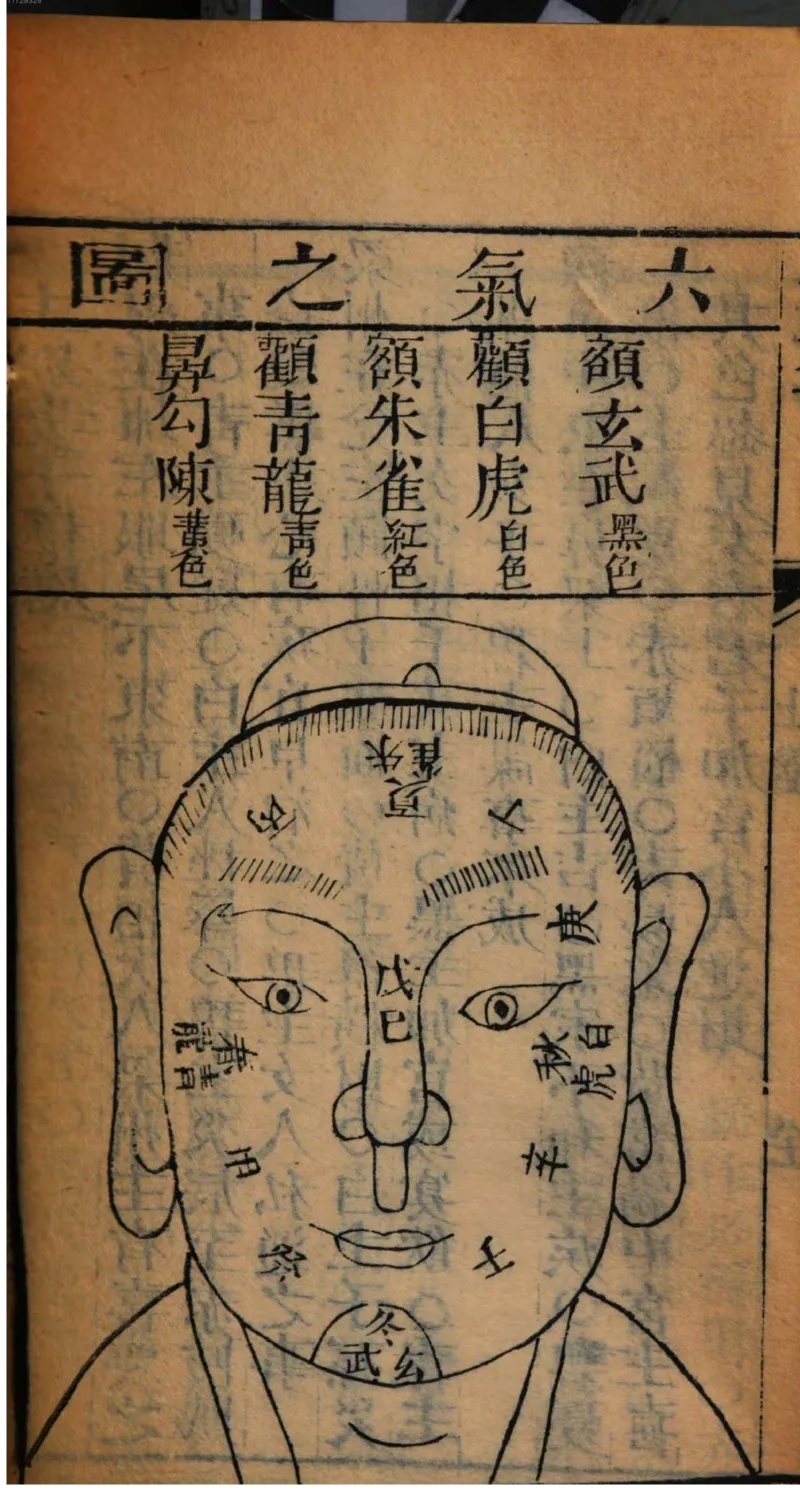 六氣之圖
頷玄武黑色
顴白虎白色
額朱雀紅色
顴青龍青色
勾陳黃色
朱雀
夏
庚
戊
巳
秋
白虎
春
青龍
辛
冬
玄武